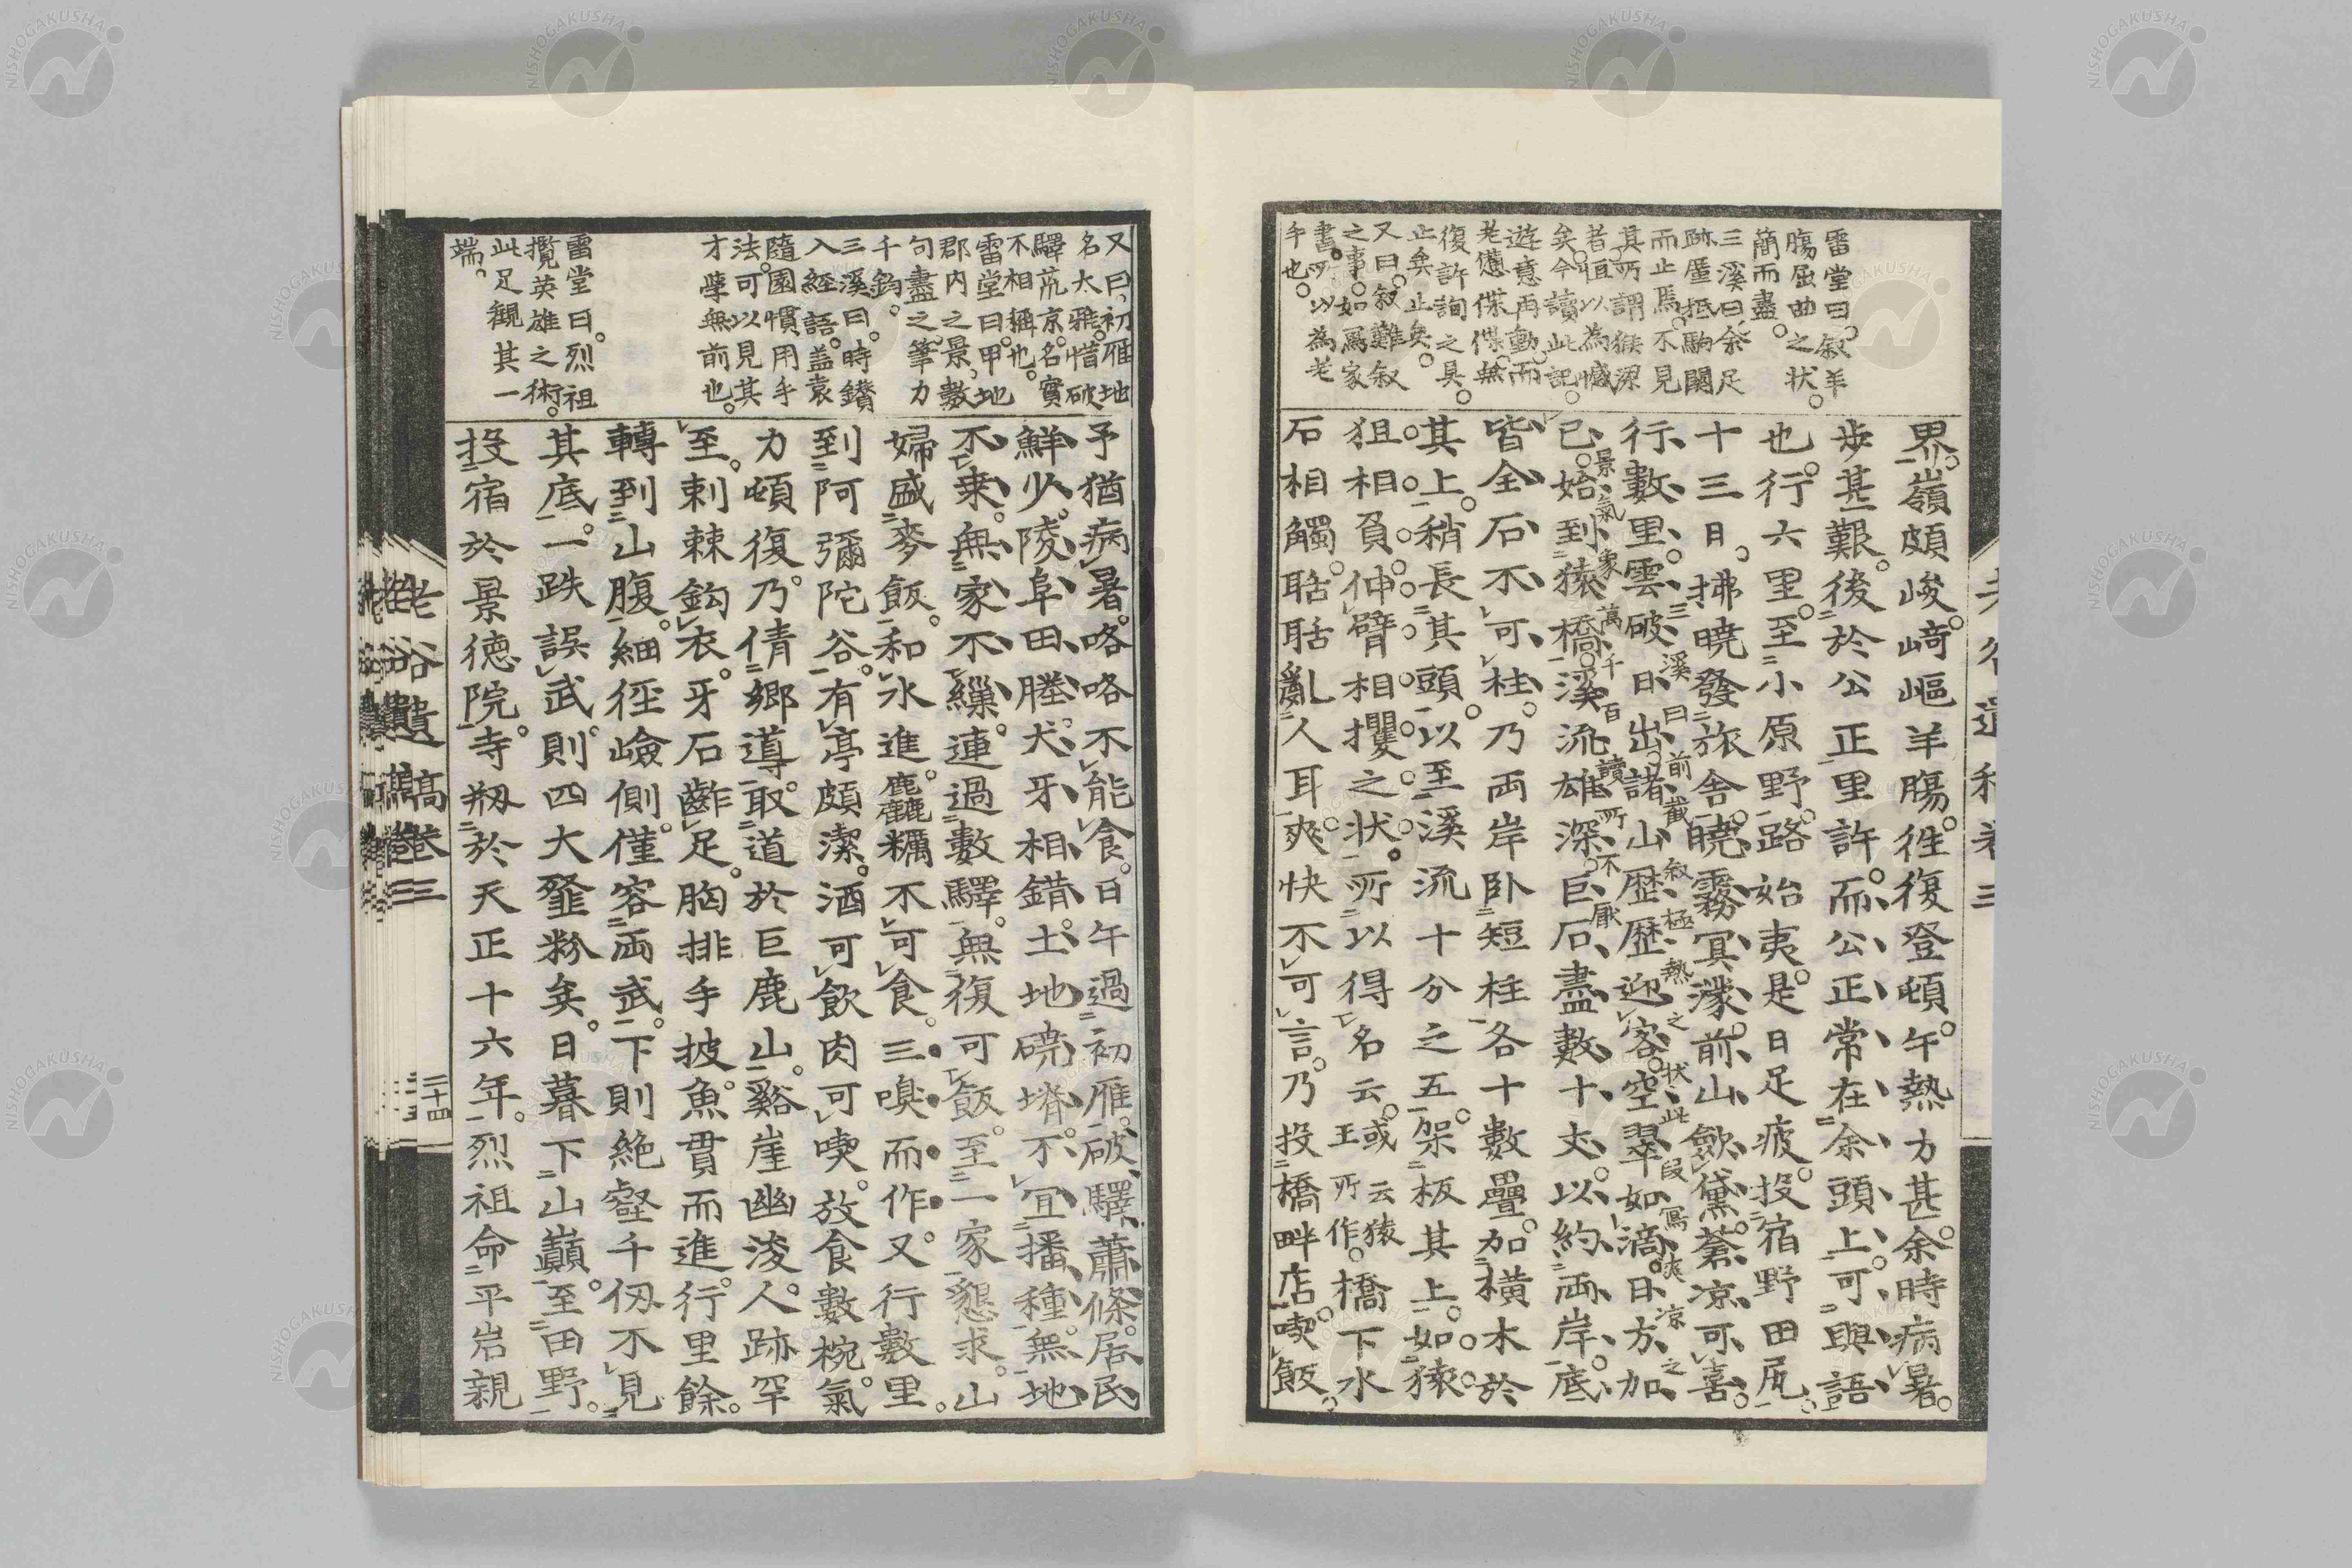 雷堂曰。叙羊
腸屈曲之状。
簡而盡。
三溪曰。余足
跡厪抵駒關
而止焉。不見
其所謂猴梁
者。恒以為憾
矣。今讀此記。
遊意再動。而
老憊傑傑無
復許詢之具。
止矣止矣。
又曰。叙難叙
之事。如寫家
書。所以為老
手也。
界。嶺頗峻。﨑嶇羊腸。徃復登頓。午熱方甚。余時病暑。
歩甚艱。後於公正里許。而公正常在余頭上。可與語
也。行六里。至小原野。路始夷。是日足疲。投宿野田尻。
十三日。拂曉發旅舎。曉霧冥濛。前山歛黛。蒼凉可喜。
三溪曰前截叙極熱之状此段寫爽凉之
行數里。雲破日出。諸山歴歴迎客。空翠如滴。日方加
景氣象萬千百讀所不厭
已。始到猿橋。溪流雄深。巨石盡數十丈。以約兩岸。底
皆全石。不可柱。乃兩岸卧短柱各十數疊。加横木於
其上。稍長其頭。以至溪流十分之五。架板其上。如猿
狙相負。伸臂相攫之状。所以得名云。或云猿王所作。橋下水
石相觸。聒聒亂人耳。爽快不可言。乃投橋畔店。喫飯。
又曰。初雁地
名大雅。惜破
驛荒凉。名實
不相稱也。
雷堂曰。甲地
郡内之景。數
句盡之。筆力
千鈞。
三溪曰。時鑽
入經語。盖袁
隨園慣用手
法。可以見其
才學無前也。
雷堂曰。烈祖
攬英雄之術。
此足觀其一
端。
予猶病暑。咯咯不能食。日午過初雁。破驛蕭條。居民
鮮少。陵阜田塍。犬牙相錯。土地磽瘠。不宜播種。無地
不桒。無家不繅。連過數驛。無復可飯。至一家懇求。山
婦盛麥飯。和水進。麤糲不可食。三嗅而作。又行數里。
到阿彌陀谷。有亭頗潔。酒可飲肉可喫。放食數椀。氣
力頓復。乃倩郷導。取道於巨鹿山。谿崖幽浚。人跡罕
至。刺棘鈎衣。牙石齚足。胸排手披。魚貫而進。行里餘。
轉到山腹。細徑嶮側。僅容兩武。下則絶壑千仭不見
其底。一跌誤武。則四大韲粉矣。日暮下山巓。至田野。
投宿於景徳院。寺剏於天正十六年。烈祖命平岩親
老谷遺稿巻三
二十四